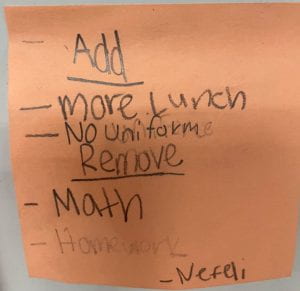 -
Add
- more Lunch
- No uniforme
Remove
- Math
- Homework
- Nefeli